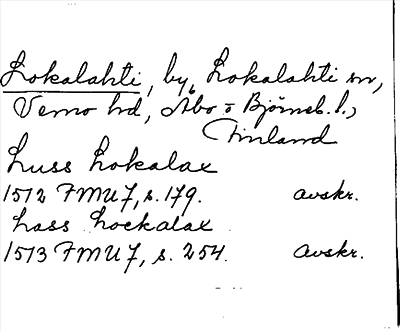 Lokalahti, by, Lokalahti sn,
Vemo hd, Åbo o Björneb. l.,
Finland
Luss Lokalax
1512 FMU 7, s. 179. avskr.
Lass Lockalax
1513 FMU 7, s. 254. avskr.